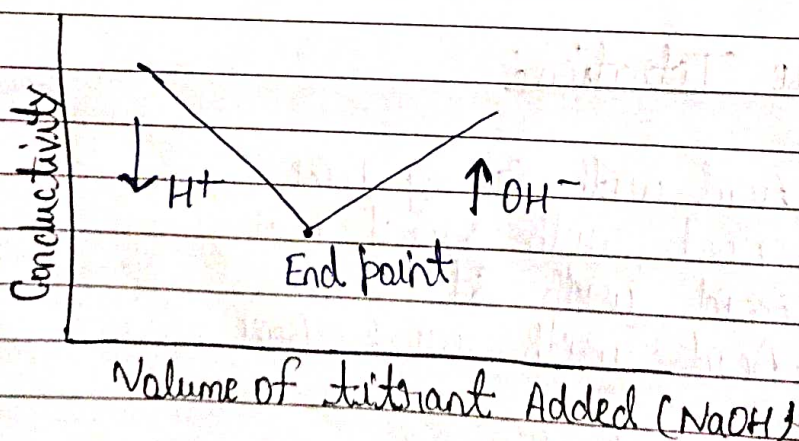 Conductivity
↓ H+
↑ OH−
End point
Volume of titrant Added (NaOH)